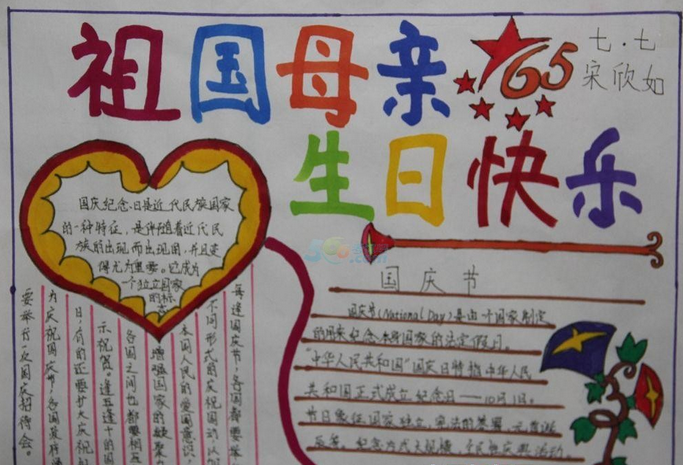 祖国母亲
65
七.七
宋欣如
生日快乐
国庆纪念日是近代民族国家
的一种特征，是伴随着近代民
族的出现而出现的，并且变
得尤为重要。它成为
一个独立国家
的标
志
国庆节
国庆节(National Day)是由一个国家制定
的用来纪念本身国家的法定假日
"中华人民共和国"国庆日特指中华人民
共和国正式成立纪念日——10月1日。
节日象征国家独立、宪法的签署、元首诞
纪念方式大规模、全民性庆典活动。
每逢国庆节，各国都要举
不同形式的庆祝活动，以加
本国人民的爱国意识，
增强国家的凝聚力
各国之间也都要相互
示祝贺。逢五逢十的国
日，有的还要扩大庆祝
为庆祝国庆节，各国政府
要举行一次国庆招待会。